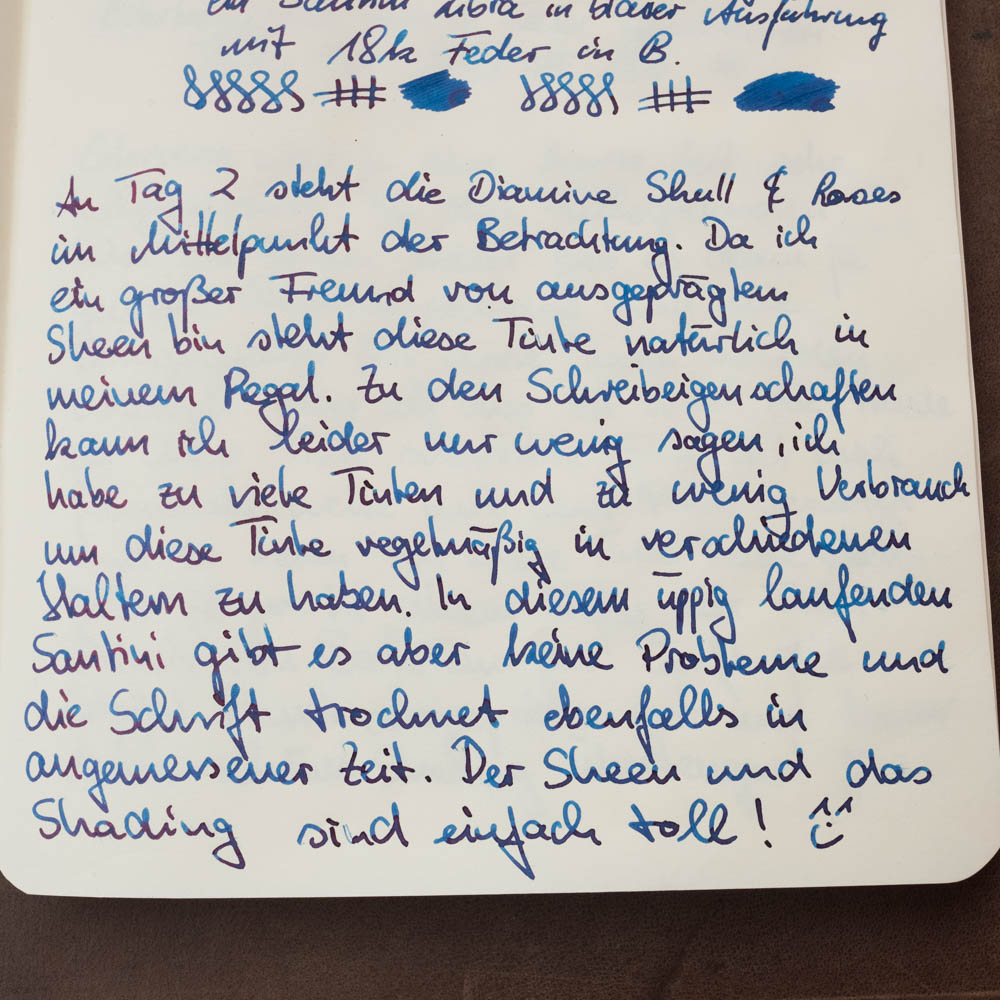 ein Santini Libra in blauer Ausführung
mit 18k Feder in B.
An Tag 2 steht die Diamine Skull & Roses
im Mittelpunkt der Betrachtung. Da ich
ein großer Freund von ausgeprägtem
Sheen bin steht diese Tinte natürlich in
meinem Regal. Zu den Schreibeigenschaften
kann ich leider nur wenig sagen, ich
habe zu viele Tinten und zu wenig Verbrauch
um diese Tinte regelmäßig in verschiedenen
Haltern zu haben. In diesem üppig laufenden
Santini gibt es aber keine Probleme und
die Schrift trocknet ebenfalls in
angemessener Zeit. Der Sheen und das
Shading sind einfach toll!